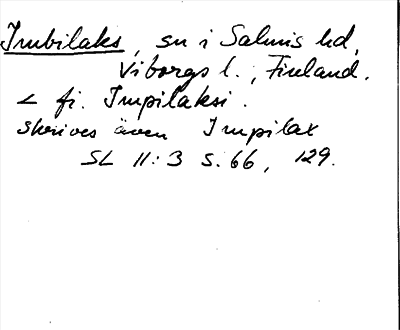 Imbilaks, sn i Salmis hd,
Viborgs l., Finland.
< fi. Impilaksi.
skrives även Impilax
SL 11:3 s. 66, 129.